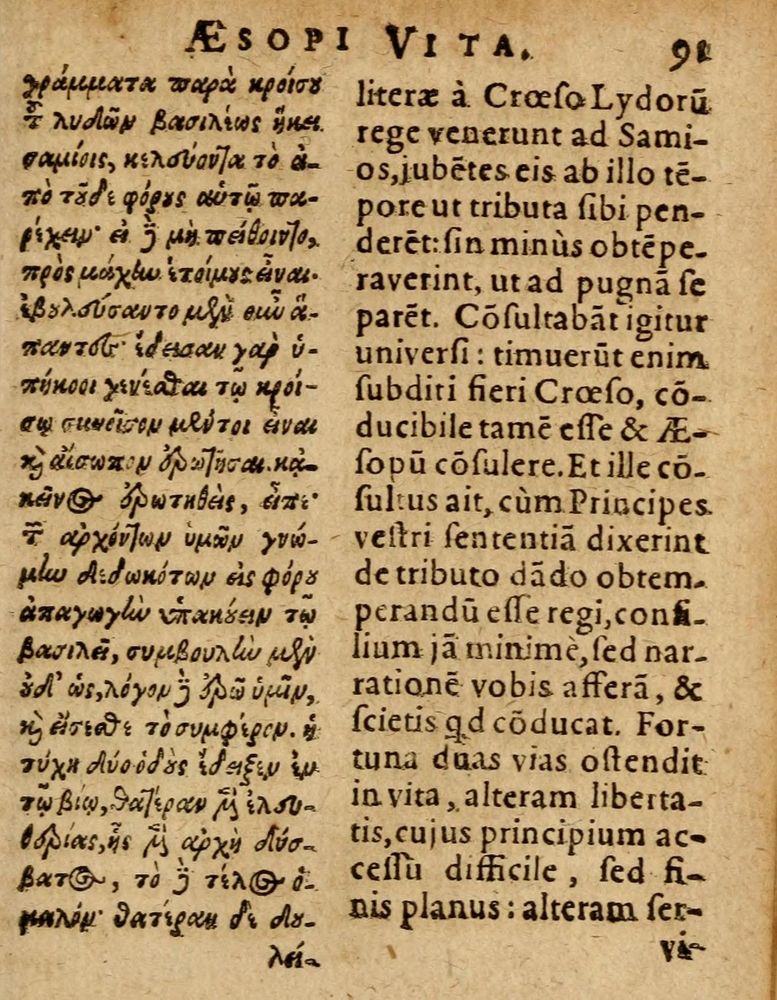 ÆSOPI VITA. 91
γράμματα παρὰ κροίσου
τῶν λυδῶν βασιλέως ἥκει
σαμίοις, κελεύοντα τὸ ἀ-
πὸ τοῦδε φόρους αὐτῷ πα-
ρέχειν· εἰ δὲ μὴ πείθοιντο,
πρὸς μάχην ἑτοίμους εἶναι·
ἐβουλεύσαντο μὲν οὖν ἅ-
παντες· ἔδεισαν γὰρ ὑ-
πήκοοι γενέσθαι τῷ κροί-
σῳ συνεῖσον μέντοι εἶναι
καὶ αἴσωπον ἐρωτῆσαι. κἀ-
κεῖνος ἐρωτηθεὶς, εἶπε·
τῶν ἀρχόντων ὑμῶν γνώ-
μην δεδωκότων εἰς φόρου
ἀπαγωγὴν ὑπακούειν τῷ
βασιλεῖ, συμβουλὴν μὲν
οὐδ' ὡς, λόγον δὲ ἐρῶ ὑμῖν,
καὶ εἴσεσθε τὸ συμφέρον. ἡ
τύχη δύο ὁδοὺς ἔδειξεν ἐν
τῷ βίῳ, θατέραν μὲν ἐλευ-
θερίας, ἧς μὲν ἀρχὴ δύσ-
βατος, τὸ δὲ τέλος ὁ-
μαλόν· θατέραν δὲ δου-
λεί-
literæ à Crœſo Lydorū
rege venerunt ad Sami-
os, jubētes eis ab illo tē-
pore ut tributa ſibi pen-
derēt: ſin minùs obtēpe-
raverint, ut ad pugnā ſe
parēt. Cōſultabāt igitur
univerſi: timuerūt enim
ſubditi fieri Crœſo, cō-
ducibile tamē eſſe & Æ-
ſopū cōſulere. Et ille cō-
ſultus ait, cùm Principes
veſtri ſententiā dixerint
de tributo dādo obtem-
perandū eſſe regi, conſi-
lium jā minimè, ſed nar-
rationē vobis afferā, &
ſcietis qd cōducat. For-
tuna duas vias oſtendit
in vita, alteram liberta-
tis, cujus principium ac-
ceſſū difficile, ſed fi-
nis planus: alteram ſer-
vi-